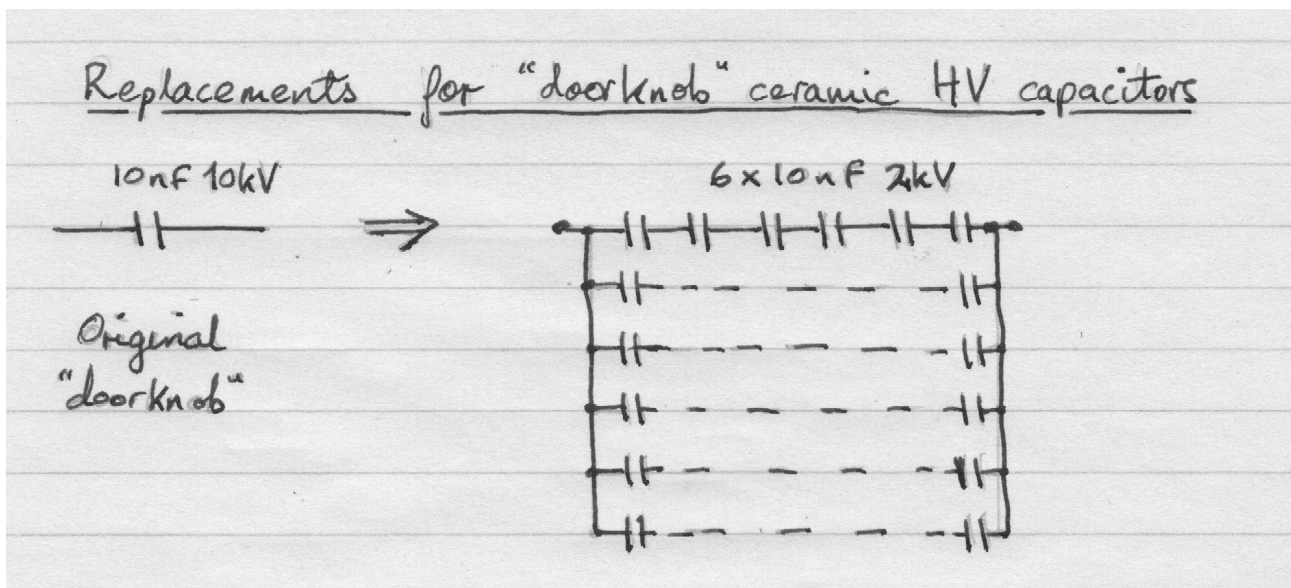 Replacements for "doorknob" ceramic HV capacitors
10nF 10kV
6 x 10nF 2kV
Original
"doorknob"